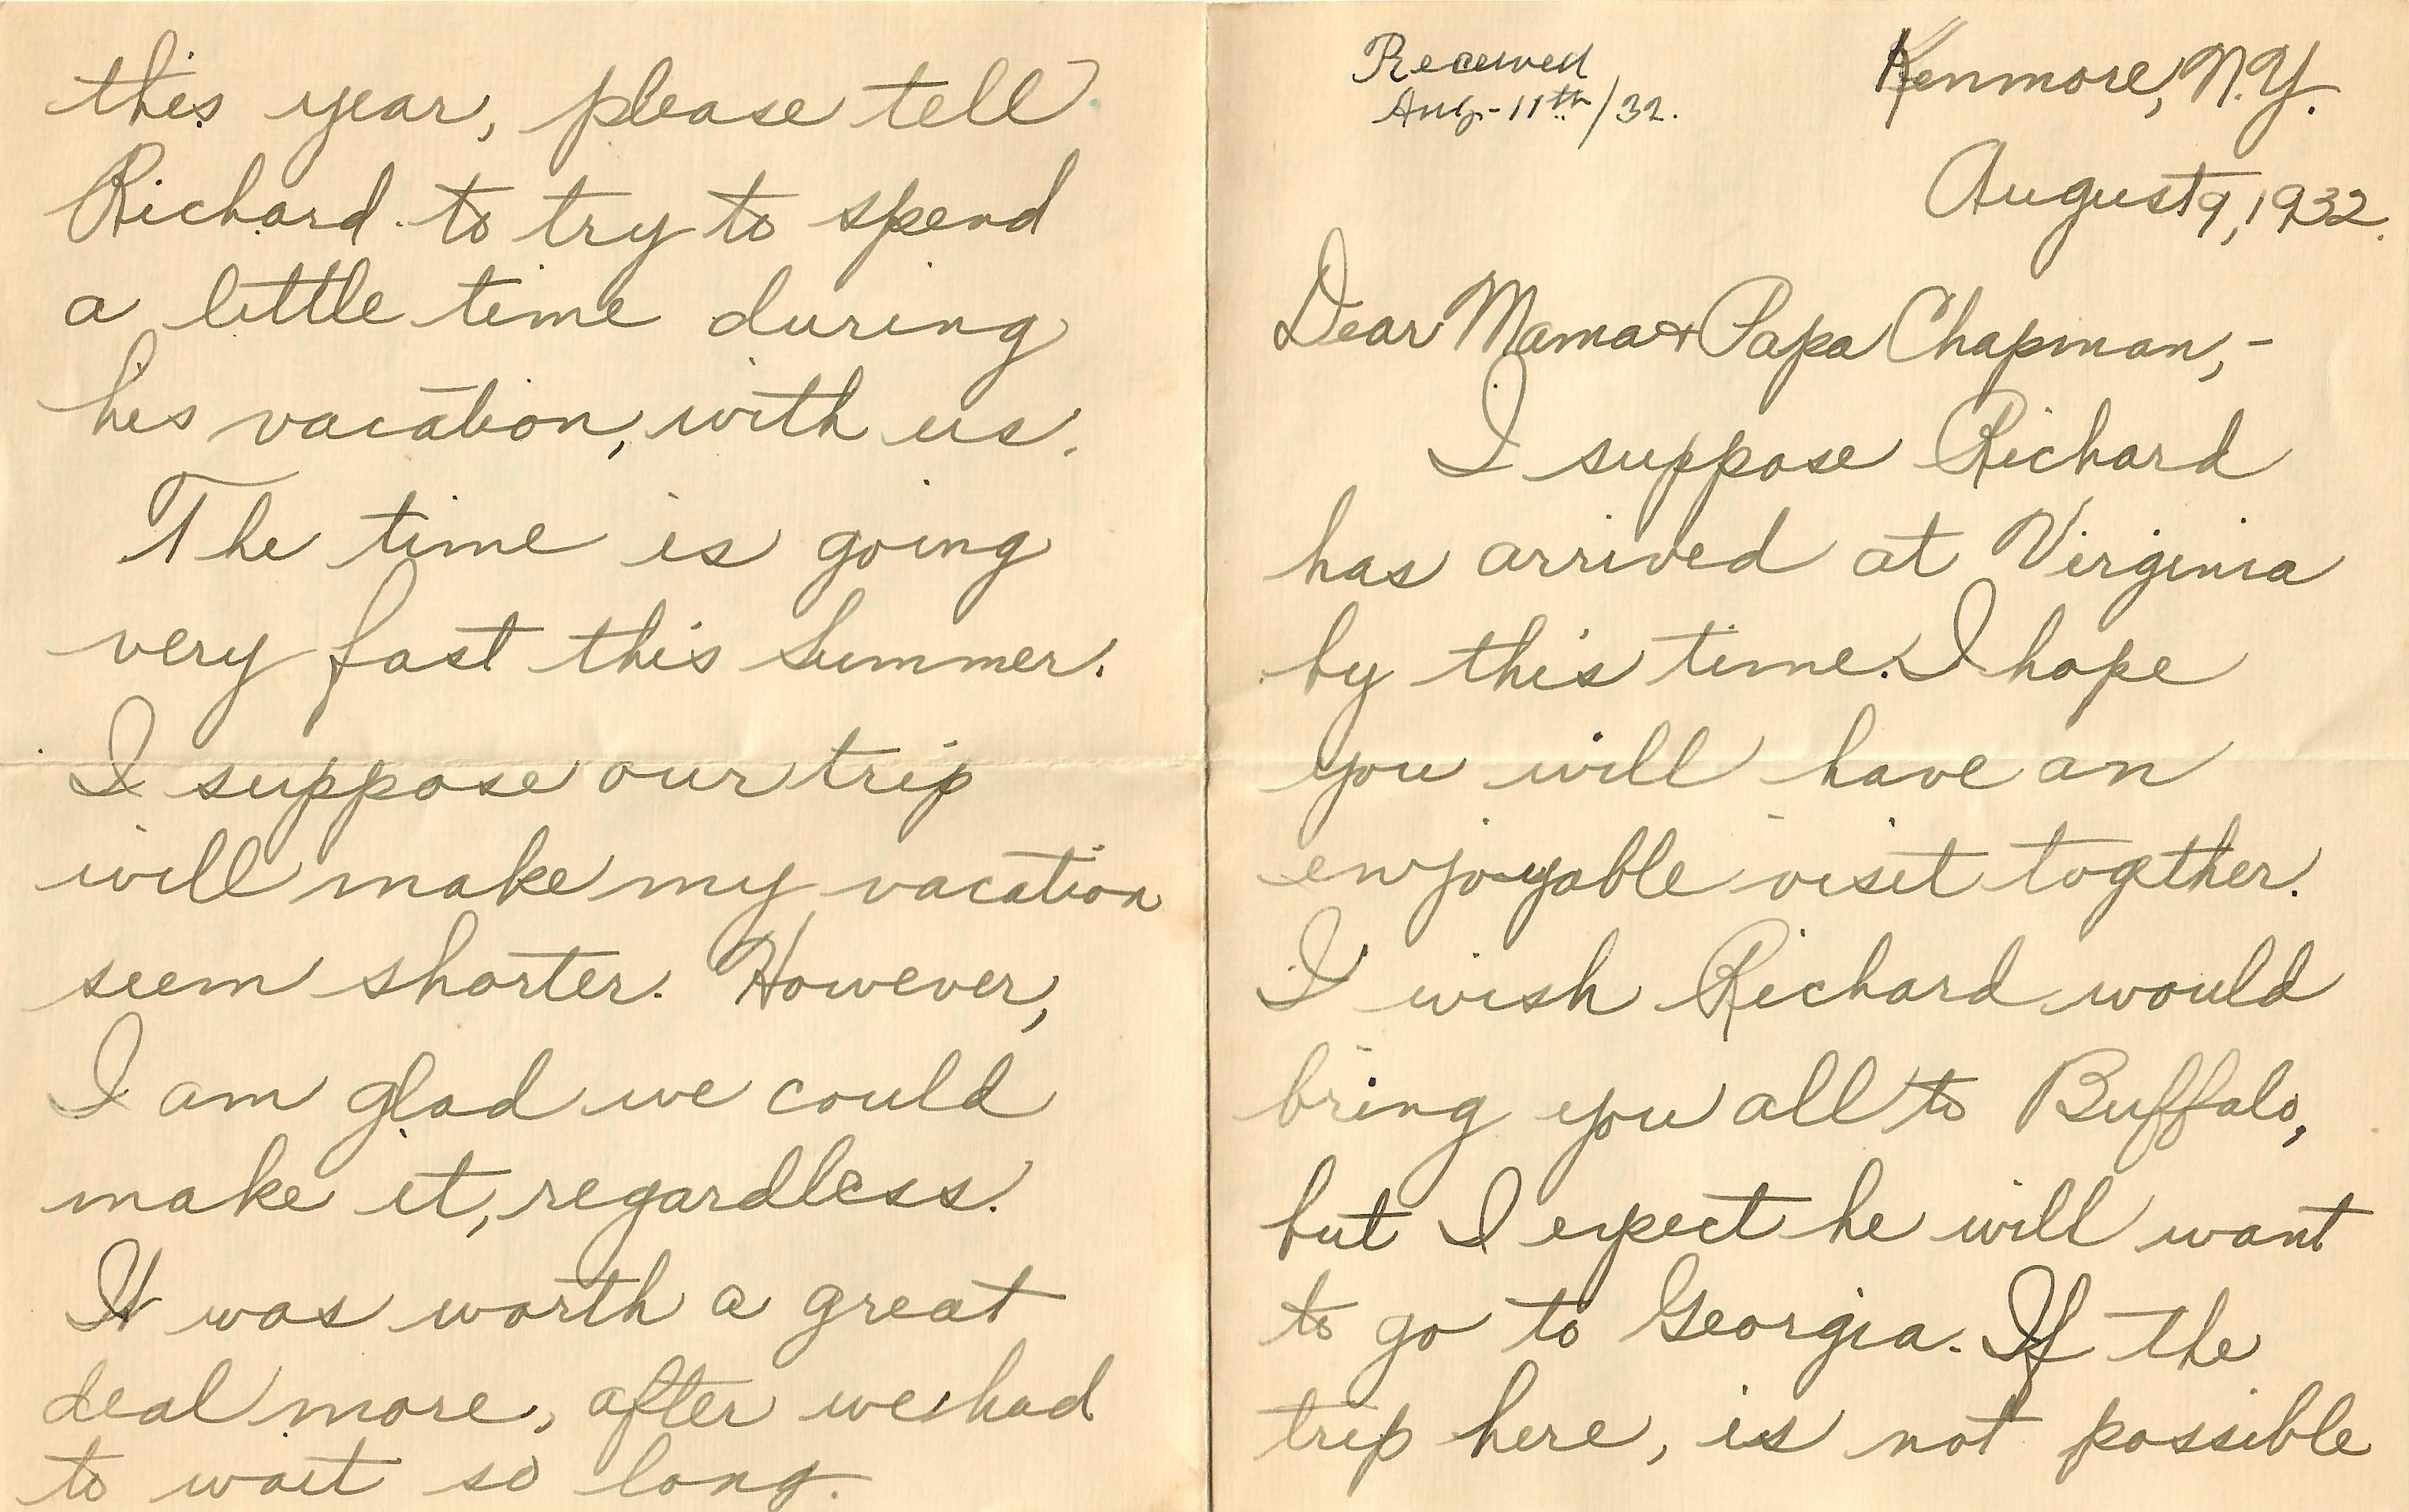 Received
Aug-11th/32.
Kenmore, N.Y.
August 9, 1932.
Dear Mama + Papa Chapman,-
I suppose Richard
has arrived at Virginia
by this time. I hope
you will have an
enjoyable visit together.
I wish Richard would
bring you all to Buffalo,
but I expect he will want
to go to Georgia. If the
trip here, is not possible
this year, please tell
Richard to try to spend
a little time during
his vacation, with us.
The time is going
very fast this Summer.
I suppose our trip
will make my vacation
seem shorter. However,
I am glad we could
make it, regardless.
It was worth a great
deal more, after we had
to wait so long.